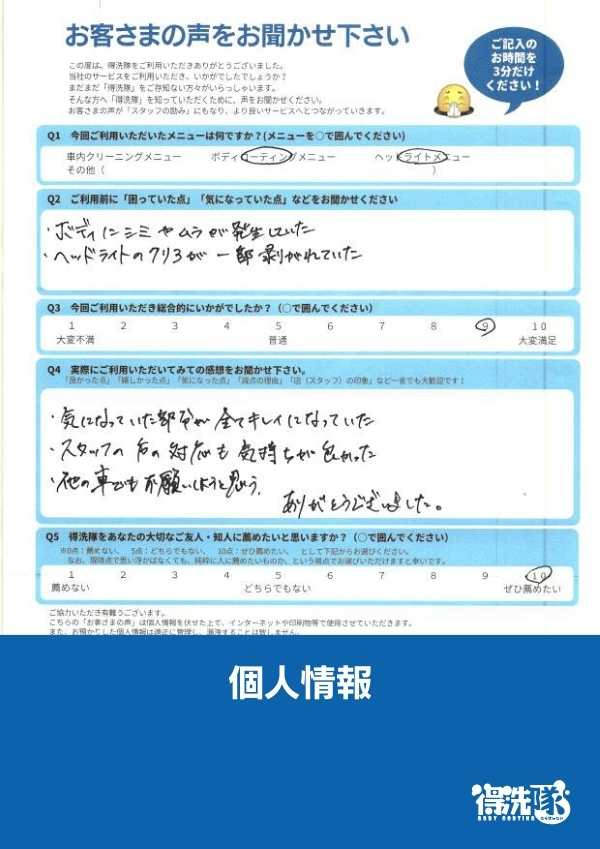 お客さまの声をお聞かせ下さい
ご記入の
お時間を
3分だけ
ください!
この度は、得洗隊をご利用いただきありがとうございました。
当社のサービスをご利用いただき、いかがでしたでしょうか?
まだまだ「得洗隊」をご存知ない方々がいらっしゃいます。
そんな方へ「得洗隊」を知っていただくために、声をお聞かせください。
お客さまの声が「スタッフの励み」にもなり、より良いサービスへとつながっていきます。
Q1 今回ご利用いただいたメニューは何ですか?(メニューを○で囲んでください)
車内クリーニングメニュー ボディコーティングメニュー ヘッドライトメニュー
その他( )
Q2 ご利用前に「困っていた点」「気になっていた点」などをお聞かせください
・ボディにシミやムラが発生していた
・ヘッドライトのクリアが一部剥がれていた
Q3 今回ご利用いただき総合的にいかがでしたか?(○で囲んでください)
1 2 3 4 5 6 7 8 9 10
大変不満 普通 大変満足
Q4 実際にご利用いただいてみての感想をお聞かせ下さい。
「良かった点」「嬉しかった点」「気になった点」「満点の理由」「店(スタッフ)の印象」など一言でも大歓迎です!
・気になっていた部分が全てキレイになっていた
・スタッフの方の対応も気持ちが良かった
・他の車でもお願いしようと思う。
ありがとうございました。
Q5 得洗隊をあなたの大切なご友人・知人に薦めたいと思いますか?(○で囲んでください)
※0点:薦めない、 5点:どちらでもない、 10点:ぜひ薦めたい、 として下記からお選びください。
なお、現時点で思い浮かばなくても、純粋に人に薦めたいものか、という視点でお選びいただけますと幸いです。
1 2 3 4 5 6 7 8 9 10
薦めない どちらでもない ぜひ薦めたい
ご協力いただき有難うございます。
こちらの「お客さまの声」は個人情報を伏せた上で、インターネットや印刷物等で使用させていただきます。
また、お預かりした個人情報は適正に管理し、漏洩することは致しません。
個人情報
得洗隊